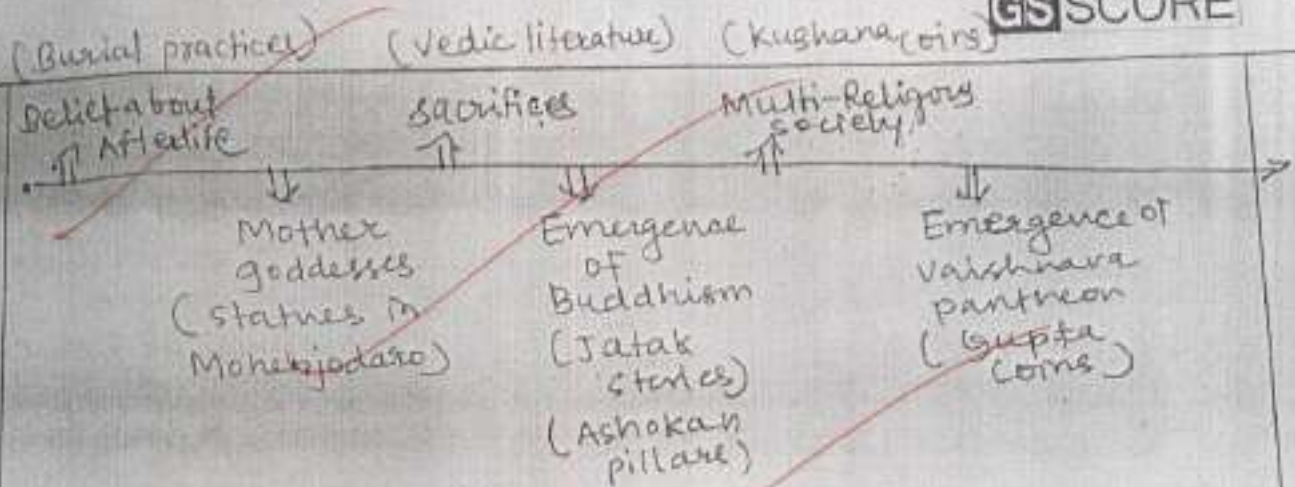 GS SCORE
(Burial practices) (Vedic literature) (Kushana coins)
Belief about Afterlife
sacrifices
Multi-Religous society
Mother
goddesses
(statues in
Mohenjodaro)
Emergenae
of
Buddhism
(Jatak
stories)
(Ashokan
pillars)
Emergence of
vaishnava
pantheon
(Gupta
coins)